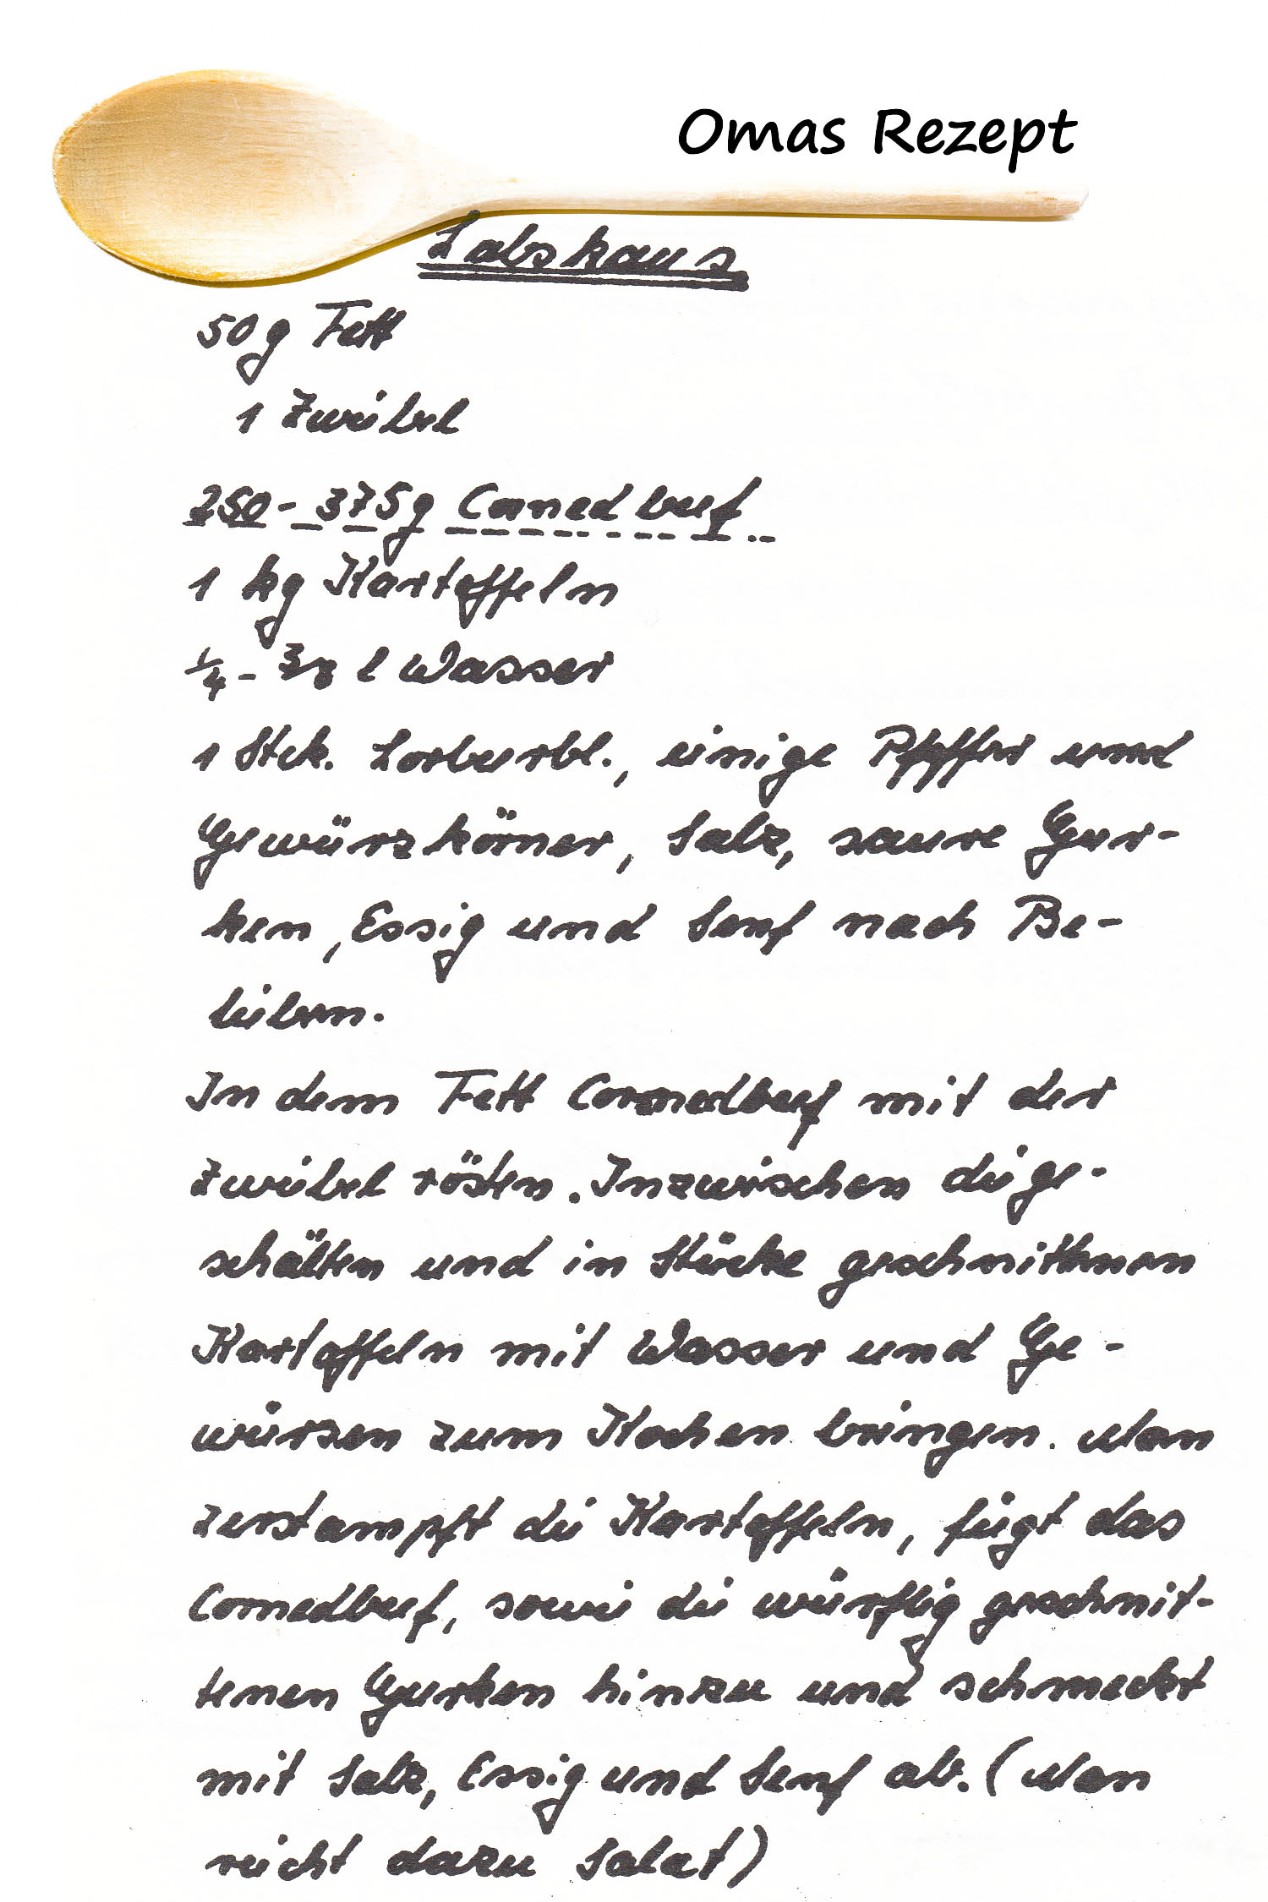 Omas Rezept
Labskaus
50g Fett
1 Zwiebel
250 - 375g Cornedbeef
1 kg Kartoffeln
1/4 - 3/8 l Wasser
1 Stck. Lorbeerbl., einige Pfeffer und
Gewürzkörner, Salz, saure Gur-
ken, Essig und Senf nach Be-
lieben.
In dem Fett Cornedbeef mit der
Zwiebel rösten. Inzwischen die ge-
schälten und in Stücke geschnittenen
Kartoffeln mit Wasser und Ge-
würzen zum Kochen bringen. Man
zerstampft die Kartoffeln, fügt das
Cornedbeef, sowie die würflig geschnit-
tenen Gurken hinzu und schmeckt
mit Salz, Essig und Senf ab. (Man
reicht dazu Salat)